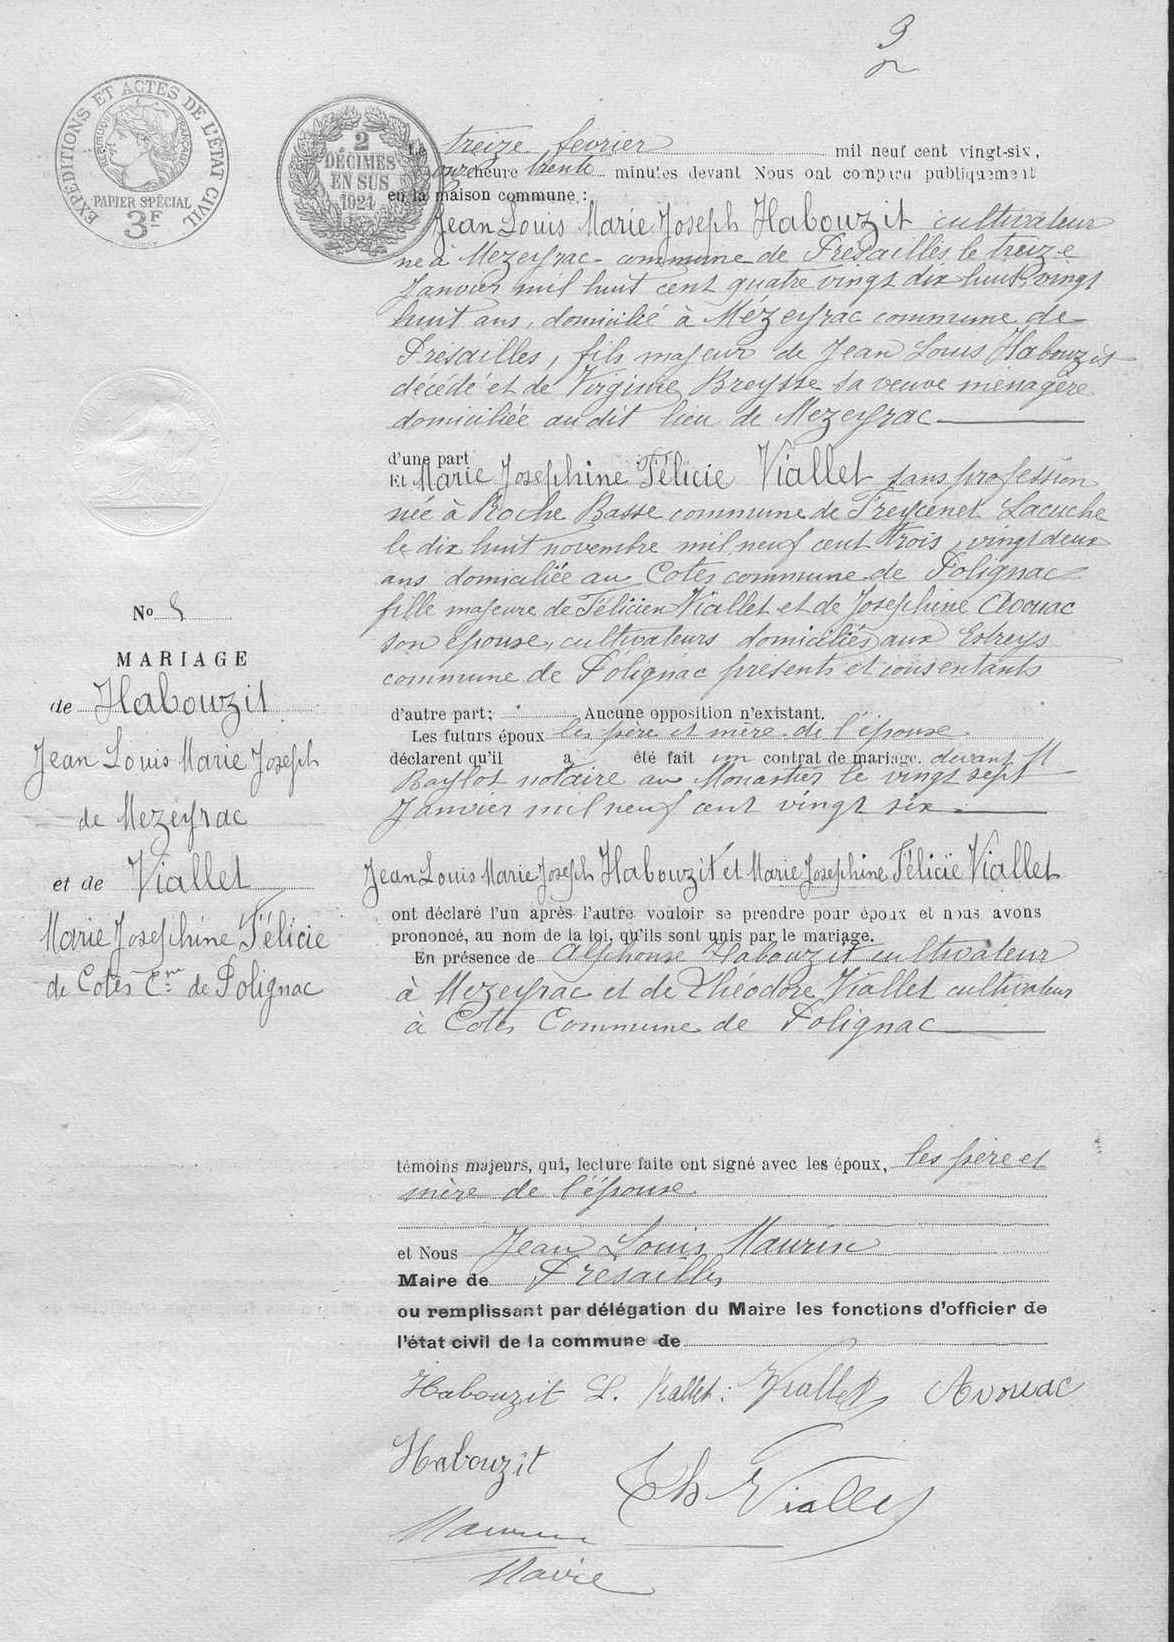 3
EXPÉDITIONS ET ACTES DE L'ÉTAT CIVIL
RÉPUBLIQUE FRANÇAISE
PAPIER SPÉCIAL
3F
2
DÉCIMES
EN SUS
1921
Le treize fevrier mil neuf cent vingt-six,
onze heure trente minutes devant Nous ont comparu publiquement
en la maison commune :
Jean Louis Marie Joseph Habouzit cultivateur
né à Mezeyrac commune de Présailles le treize
Janvier mil huit cent quatre vingt dix huit, vingt
huit ans, domicilié à Mézeyrac commune de
Présailles, fils majeur de Jean Louis Habouzit
décédé et de Virginie Breysse sa veuve ménagère
domiciliée au dit lieu de Mezeyrac
d'une part
Et Marie Josephine Félicie Viallet sans profession
née à Roche Basse commune de Freycenet Lacuche
le dix huit novembre mil neuf cent trois, vingt deux
ans domiciliée au Cotes commune de Polignac
fille majeure de Félicien Viallet et de Josephine Avouac
son épouse, cultivateurs domiciliés aux Estreys
commune de Polignac présents et consentants
d'autre part; Aucune opposition n'existant.
Les futurs époux les père et mère de l'épouse
déclarent qu'il a été fait un contrat de mariage. devant M
Baylot notaire au Monastier le vingt sept
Janvier mil neuf cent vingt six
Jean Louis Marie Joseph Habouzit et Marie Josephine Félicie Viallet
ont déclaré l'un après l'autre vouloir se prendre pour époux et nous avons
prononcé, au nom de la loi, qu'ils sont unis par le mariage.
En présence de Alphonse Habouzit cultivateur
à Mezeyrac et de Théodore Viallet cultivateur
à Cotes Commune de Polignac
témoins majeurs, qui, lecture faite ont signé avec les époux, les père et
mère de l'épouse
et Nous Jean Louis Maurin
Maire de Présailles
ou remplissant par délégation du Maire les fonctions d'officier de
l'état civil de la commune de
Habouzit L. Viallet. Viallet Avouac
Habouzit Th Viallet
Maurin
Mairie
No 5
MARIAGE
de Habouzit
Jean Louis Marie Joseph
de Mezeyrac
et de Viallet
Marie Josephine Félicie
de Cotes Cne de Polignac